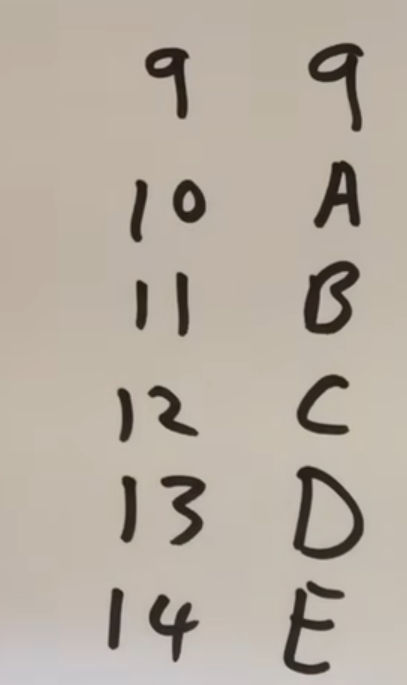 9 9
10 A
11 B
12 C
13 D
14 E